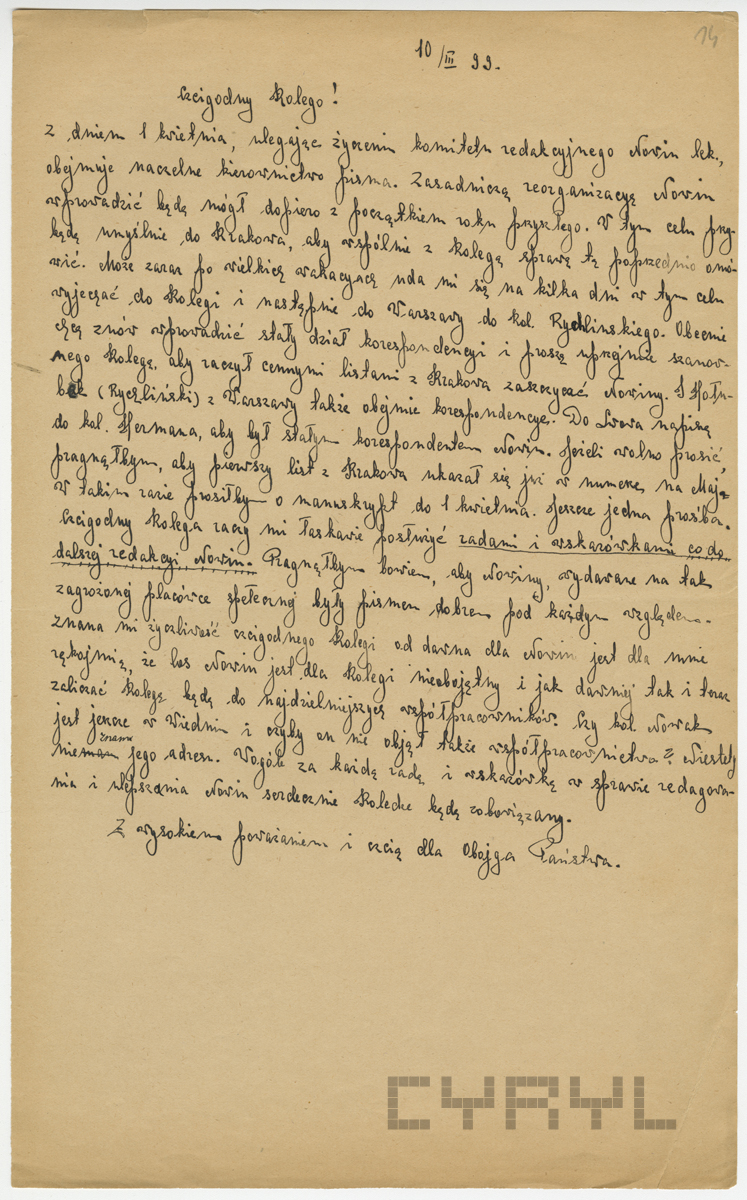 14
10/III 99.
Czcigodny Kolego!
Z dniem 1 kwietnia, ulegając życzeniu komitetu redakcyjnego Nowin lek.,
obejmuję naczelne kierownictwo pisma. Zasadniczą reorganizacyę Nowin
wprowadzić będę mógł dopiero z początkiem roku przyszłego. W tym celu przy-
będę umyślnie do Krakowa, aby wspólnie z Kolegą sprawę tę poprzednio omó-
wić. Może zaraz po wielkiej wakacyach uda mi się na kilka dni w tym celu
wyjechać do Kolegi i następnie do Warszawy do kol. Rychlinskiego. Obecnie
chcę znów wprowadzić stały dział korespondencyi i proszę uprzejmie szanow-
nego Kolegę, aby raczył cennymi listami z Krakowa zaszczycać Nowiny.
(Rychliński) z Warszawy także obejmie korespondencye. Do Lwowa napiszę
do kol. Hermana, aby był stałym korespondentem Nowin. Jeżeli wolno prosić,
pragnąłbym, aby pierwszy list z Krakowa ukazał się już w numerze na Maj.
W takim razie prosiłbym o manuskrypt do 1 kwietnia. Jeszcze jedna prośba.
Czcigodny Kolega raczy mi łaskawie posłużyć radami i wskazówkami co do
dalszej redakcyi Nowin. Pragnąłbym bowiem, aby Nowiny, wydawane na tak
zagrożonej placówce społecznej były pismem dobrem pod każdym względem.
Znana mi życzliwość czcigodnego Kolegi od dawna dla Nowin jest dla mnie
rękojmią, że los Nowin jest dla Kolegi nieobojętny i jak dawniej tak i teraz
zaliczać Kolegę będę do najdzielniejszych współpracowników. Czy kol. Nowak
jest jeszcze w Wiedniu i czyby on nie objął także współpracownictwa? Niestety
nie znam jego adresu. Wogóle za każdą radę i wskazówkę w sprawie redagowa-
nia i ulepszania Nowin serdecznie Koledze będę zobowiązany.
Z wysokiem poważaniem i czcią dla Obojga Państwa.
CYRYL